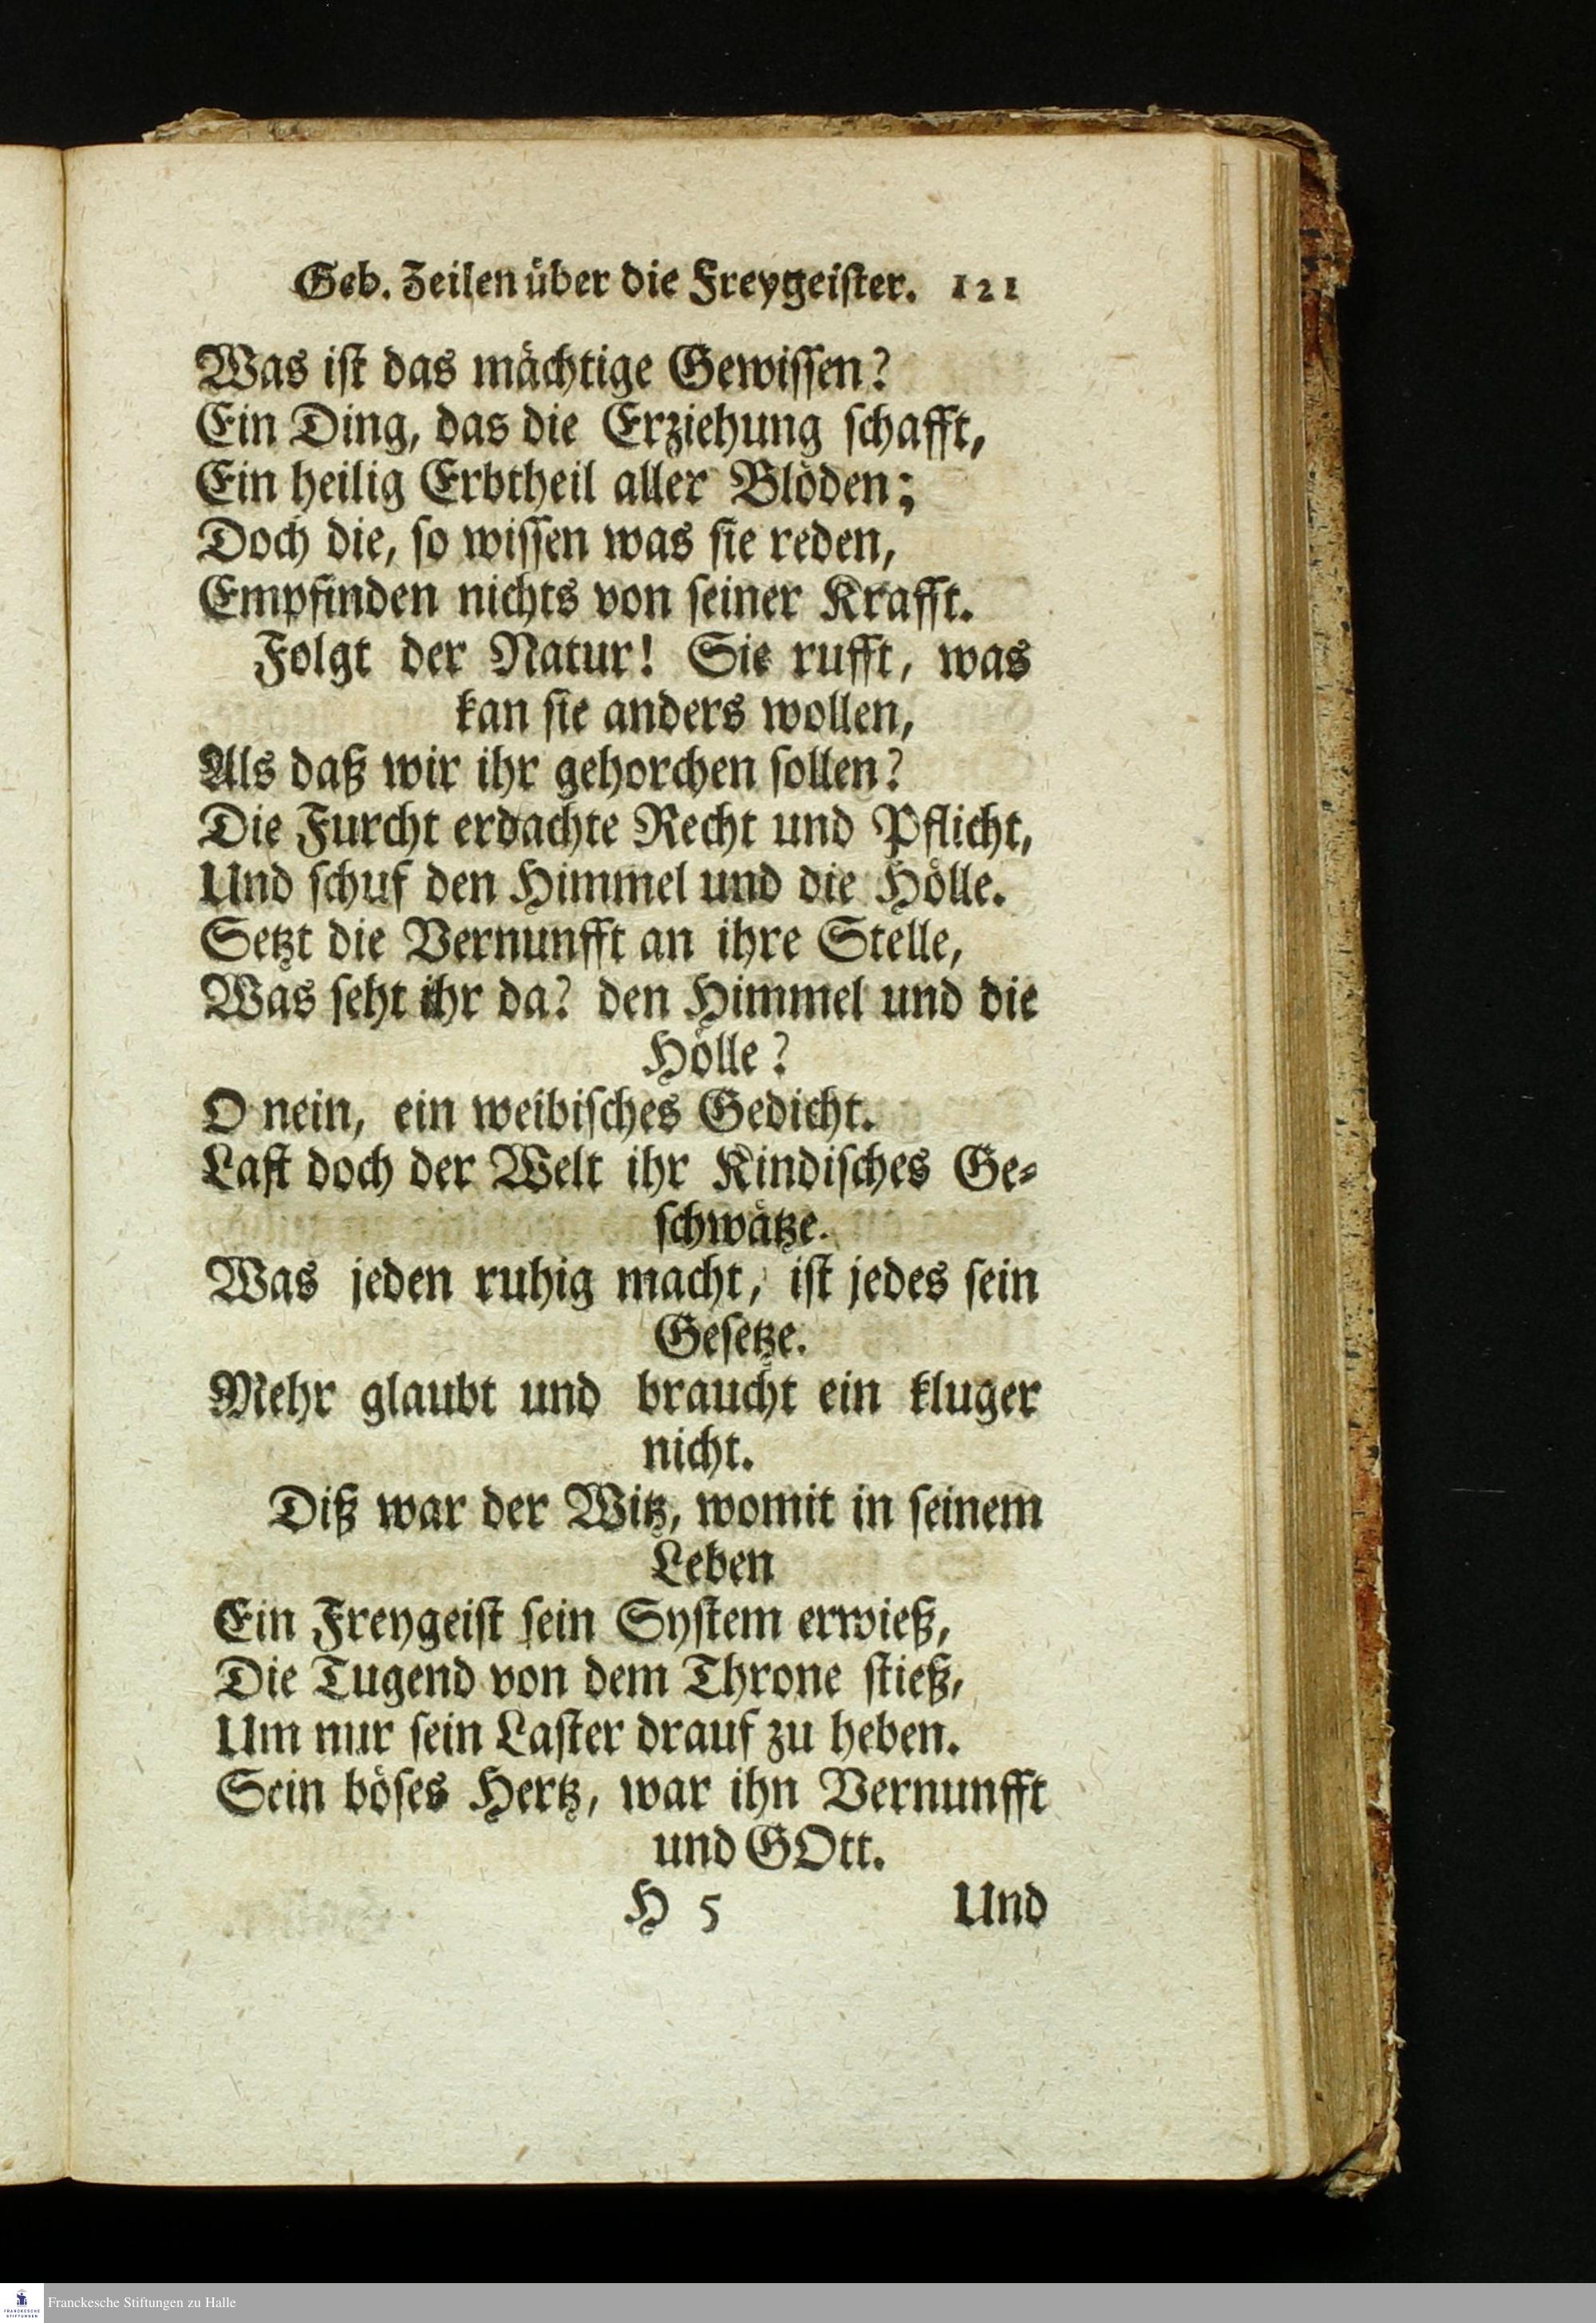 Geb. Zeilen über die Freygeister. 121
Was ist das mächtige Gewissen?
Ein Ding, das die Erziehung schafft,
Ein heilig Erbtheil aller Blöden;
Doch die, so wissen was sie reden,
Empfinden nichts von seiner Krafft.
Folgt der Natur! Sie rufft, was
kan sie anders wollen,
Als daß wir ihr gehorchen sollen?
Die Furcht erdachte Recht und Pflicht,
Und schuf den Himmel und die Hölle.
Setzt die Vernunfft an ihre Stelle,
Was seht ihr da? den Himmel und die
Hölle?
O nein, ein weibisches Gedicht.
Last doch der Welt ihr Kindisches Ge-
schwätze.
Was jeden ruhig macht, ist jedes sein
Gesetze.
Mehr glaubt und braucht ein kluger
nicht.
Diß war der Witz, womit in seinem
Leben
Ein Freygeist sein System erwieß,
Die Tugend von dem Throne stieß,
Um nur sein Laster drauf zu heben.
Sein böses Hertz, war ihn Vernunfft
und GOtt.
H 5 Und
Franckesche Stiftungen zu Halle
FRANCKESCHE
STIFTUNGEN